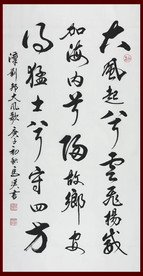 大風起兮雲飛揚威
加海內兮歸故鄉安
得猛士兮守四方
漢劉邦大風歌庚子初秋